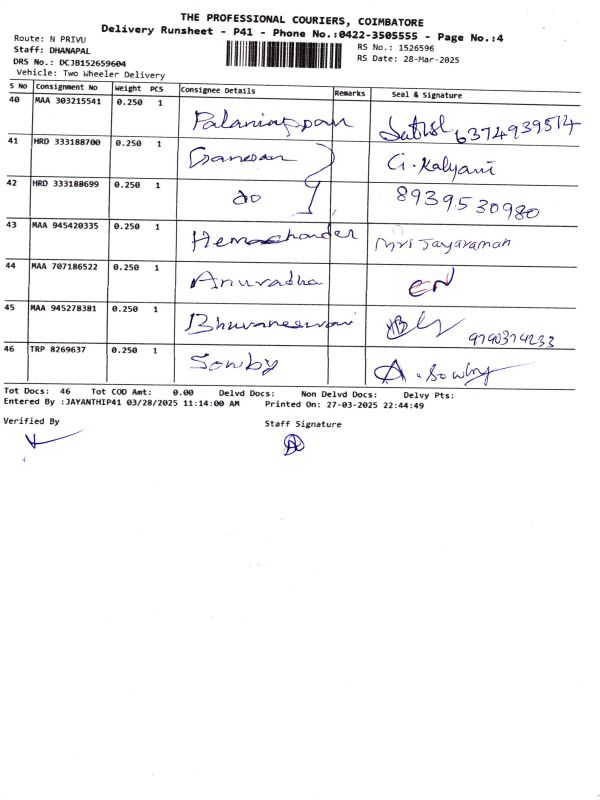 THE PROFESSIONAL COURIERS, COIMBATORE
Delivery Runsheet - P41 - Phone No.:0422-3505555 - Page No.:4
Route: N PRIVU
RS No.: 1526596
Staff: DHANAPAL
RS Date: 28-Mar-2025
DRS No.: DCJB152659604
Vehicle: Two Wheeler Delivery
S No Consignment No Weight PCS Consignee Details Remarks Seal & Signature
40 MAA 303215541 0.250 1 Palaniappan Sathish 6374939514
41 HRD 333188700 0.250 1 Ganesan G. Kalyani
42 HRD 333188699 0.250 1 do 8939530980
43 MAA 945420335 0.250 1 Hemachander Mri Jayaraman
44 MAA 707186522 0.250 1 Anuradha
45 MAA 945278381 0.250 1 Bhuvaneswari 9790374233
46 TRP 8269637 0.250 1 Sowby A. Sowby
Tot Docs: 46 Tot COD Amt: 0.00 Delvd Docs: Non Delvd Docs: Delvy Pts:
Entered By :JAYANTHIP41 03/28/2025 11:14:00 AM Printed On: 27-03-2025 22:44:49
Verified By
Staff Signature